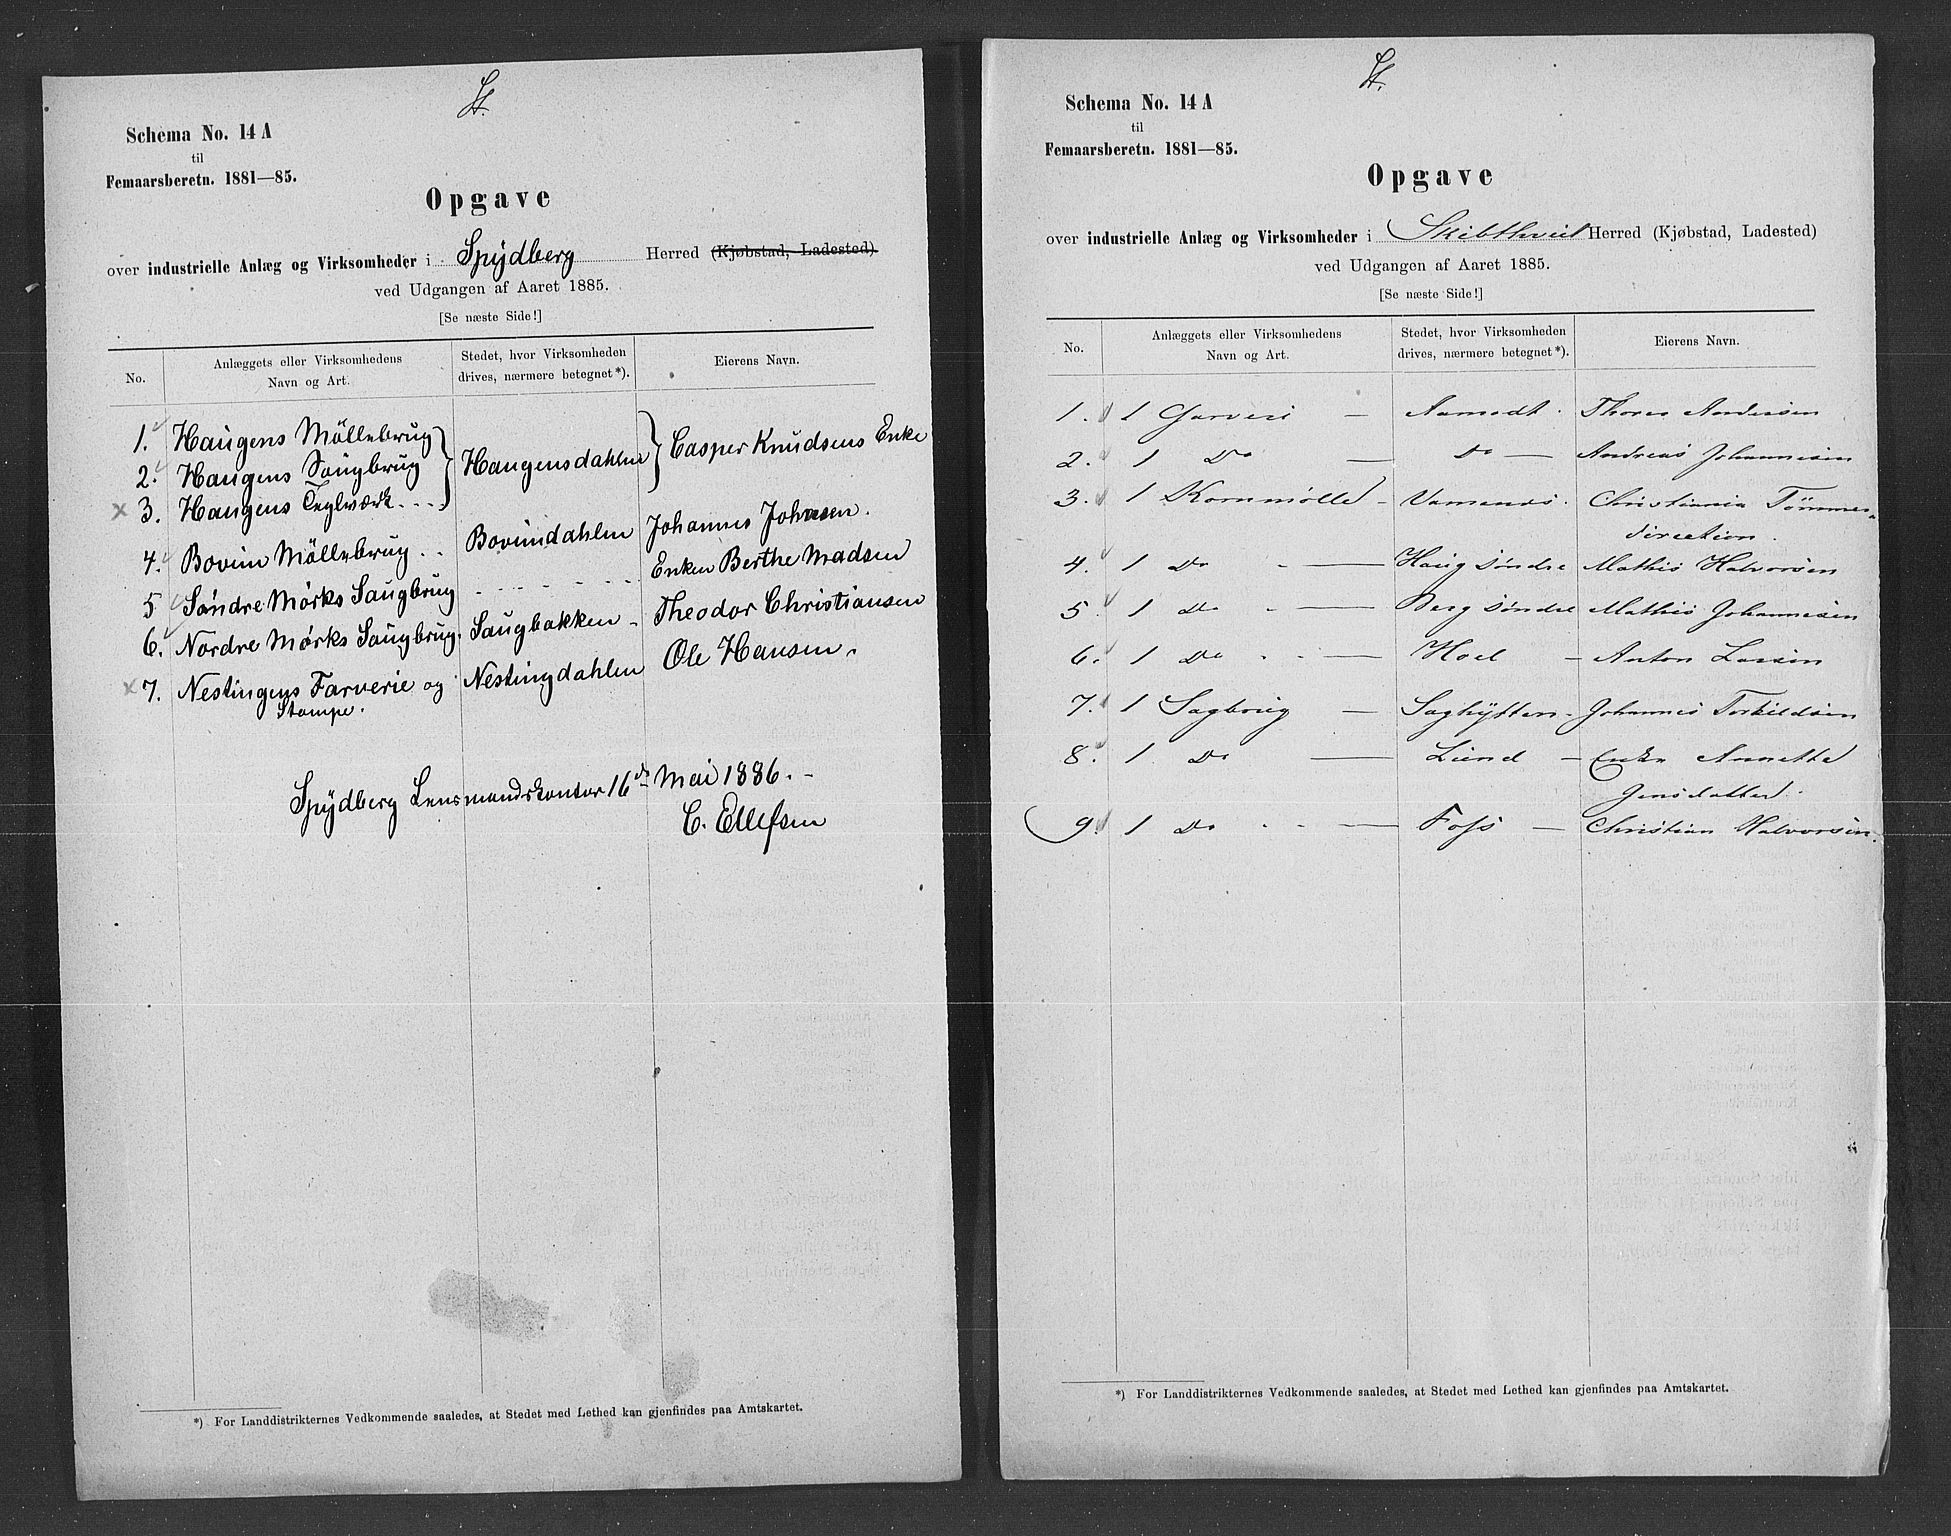 St.
Schema No. 14 A
til
Femaarsberetn. 1881—85.
Opgave
over industrielle Anlæg og Virksomheder i Spydberg Herred (Kjøbstad, Ladested)
ved Udgangen af Aaret 1885.
[Se næste Side!]
No. Anlæggets eller Virksomhedens Navn og Art. Stedet, hvor Virksomheden drives, nærmere betegnet*). Eierens Navn.
1. Haugens Möllebrug
2. Haugens Saugbrug Haugensdahlen Casper Knudsens Enke
x 3. Haugens Teglværk
4. Bovim Möllebrug Bovimdahlen Johannes Johnsen.
5 Söndre Mørks Saugbrug Enken Berthe Madsen
6. Nordre Mørks Saugbrug. Saugbakken Theodor Christiansen
x 7. Nestingens Farverie og Nestingdahlen Ole Hansen.
Stampe.
Spydberg Lensmandskontor 16de Mai 1886.
C. Ellefsen
*) For Landdistrikternes Vedkommende saaledes, at Stedet med Lethed kan gjenfindes paa Amtskartet.
St.
Schema No. 14 A
til
Femaarsberetn. 1881—85.
Opgave
over industrielle Anlæg og Virksomheder i Skibthveit Herred (Kjøbstad, Ladested)
ved Udgangen af Aaret 1885.
[Se næste Side!]
No. Anlæggets eller Virksomhedens Navn og Art. Stedet, hvor Virksomheden drives, nærmere betegnet*). Eierens Navn.
1. 1 Garveri — Aamodt. Thorer Andersen
2. 1 Do — Do — Andreas Johannesen
3. 1 Kornmølle - Christiania Tømmer-
direction.
4. 1 Do — Haug søndre Mathis Halvorsen
5. 1 Do — Berg søndre Mathis Johannesen
6. 1 Do — Hoel - Anton Larsen
7. 1 Sagbrug — Saghytten - Johannes Torkildsen
8. 1. Do — Lund — Enke Annette
Jensdatter.
9. 1 Do — Foss — Christian Halvorsen.
*) For Landdistrikternes Vedkommende saaledes, at Stedet med Lethed kan gjenfindes paa Amtskartet.